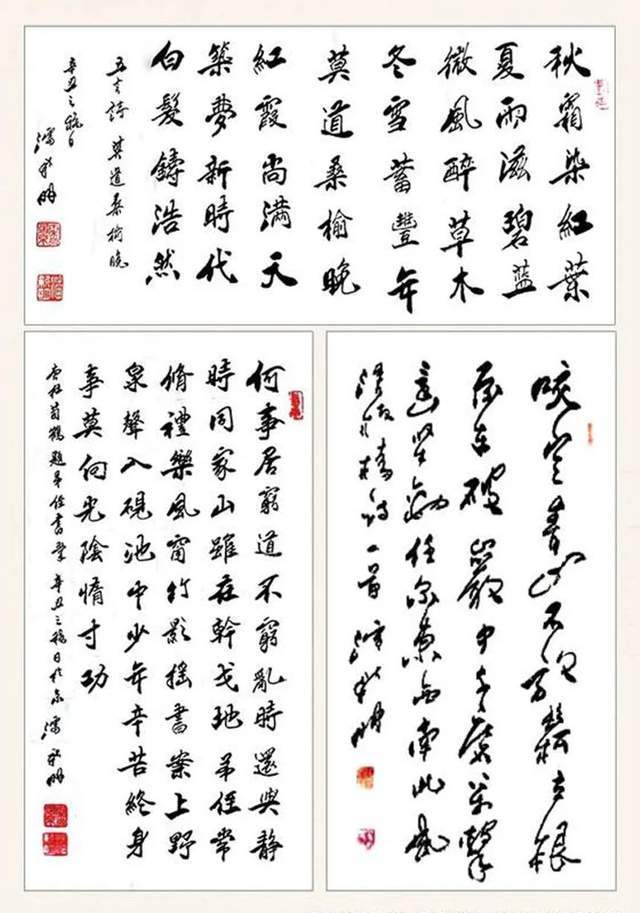 秋霜染紅葉
夏雨滋碧蓝
微風醉草木
冬雪蓄豐年
莫道桑榆晚
紅霞尚滿天
築夢新時代
白髮鑄浩然
五言詩 莫道桑榆晚
辛丑之秋日
咬定青山不放鬆立根
原在破巖中千磨萬擊
還堅勁任尔東西南北風
清 板橋詩一首
何事居窮道不窮亂時還與靜
時同家山雖在幹戈地弟侄常
脩禮樂風窗竹影搖書案上野
泉聲入硯池中少年辛苦終身
事莫向光陰惰寸功
唐杜荀鶴題弟侄書堂 辛丑之秋日於京